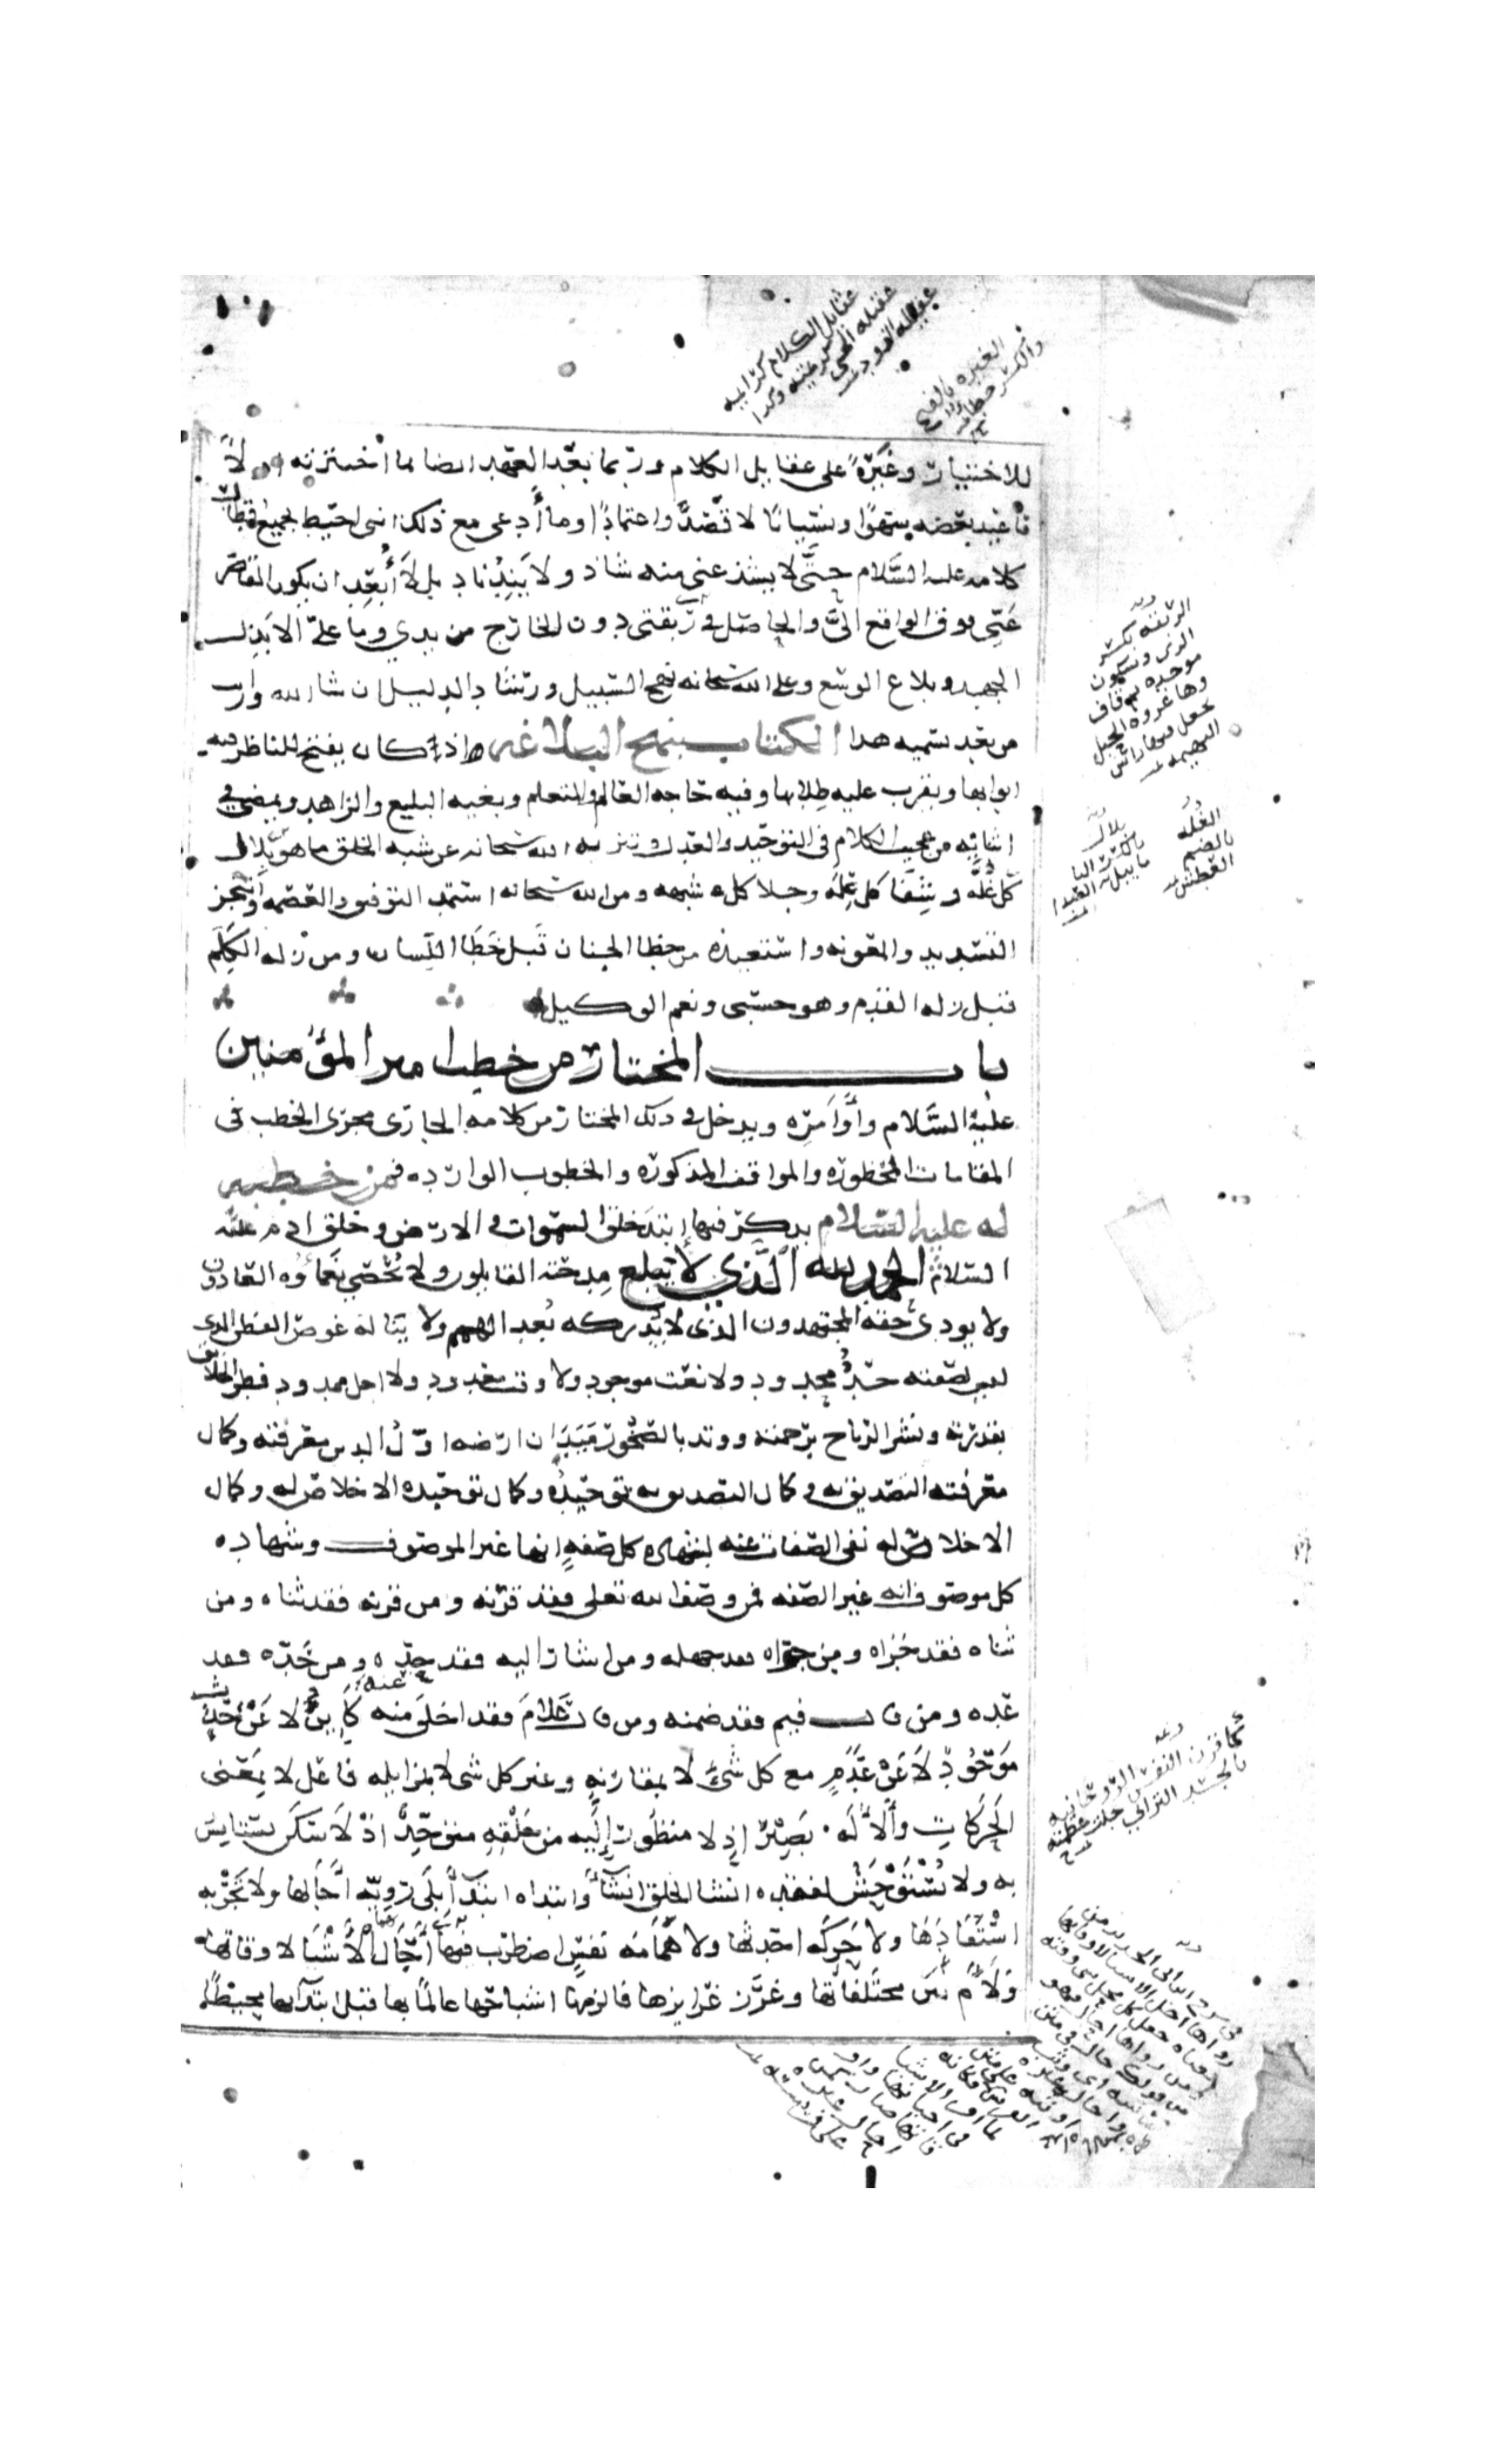 عقايل الكلام كرايمه
عقيله الحي كريمته وكذا
عقيله الذود
الغيره بالفتح
والكسر خطا
للاختيار وغَيْرَةً على عقايل الكلام وربما بَعُد العهد ايضا بما اختير اولاً
فاعيد بعضه سهوًا ونسيانًا لا قصْدًا واعتمادًا وما أدعى مع ذلك اننى احيط بجميع اقطار
كلامه عليه السَّلام حتَّى لا يشذ عنى منه شاذ ولا يَنِدَّ نادٌّ بل لا أُبْعِد ان يكون القاصر
عَنّى فوق الواقع اليَّ والحاصل في ربقتى دون الخارج من يدي وما علىّ الا بذل
الجهد وبلاغ الوسع وعلى الله سبحانه نهج السبيل ورشاد الدليل ان شا الله ورايت
من بعد تسميه هذا الكتاب بنهج البلاغه اذ كان يفتح للناظر فيه
ابوابها ويقرب عليه طلابها وفيه حاجه العالم والمتعلم وبغيه البليغ والزاهد ويمضى في
اثنايه من عجيب الكلام فى التوحيد والعدل وتنزيه الله سبحانه عن شبه الخلق ما هو بلال
كل غُلَّه وشفا كل عِلَّه وجلا كل شبهه ومن الله سبحانه استمد التوفيق والعصمه واتنجز
التسديد والمعونه واستعيذه من خطا الجنان قَبل خَطَا اللّسان ومن زله الكَلِم
قبل زله القدم وهو حسبى ونعم الوكيل
باب المختار من خطب امير المؤمنين
عليه السَّلام وأَوَامِرِه ويدخل في ذلك المختار من كلامه الجارى مجرى الخطب فى
المقامات المحظوره والمواقف المذكوره والخطوب الوارده فمن خطبه
له عليه السلام يذكر فيها ابتدا خلق السموات والارض وخلق ادم عليه
السَّلامُ الحمد لله الَّذي لا يَبلغ مِدحته القايلون ولا يُحصي نَعماؤه العادّون
ولا يودى حقه المجتهدون الذى لا يُدركه بُعد الهمم ولا يناله غوص الفطن الذى
ليس لصفته حَدٌّ محدود ولا نعت موجود ولا وقت معدود ولا اجل ممدود فطر الخلايق
بقدرته ونشر الرياح برحمته ووتد بالصّخور مَيَدَان ارضه اوّل الدين معرفته وكمال
معرفته التصديق به وكمال التصديق به توحيدُه وكمال توحيده الاخلاص له وكمال
الاخلاص له نفى الصفات عنه لشهاده كل صفهٍ انها غير الموصوف وشهاده
كل موصوف انه غير الصفه فمن وصف الله تعلى فقد قرنه ومن قرنه فقد ثناه ومن
ثناه فقد جزاه ومن جزاه فقد جهله ومن اشار اليه فقد حدّه ومن حَدّه فقد
عَدّه ومن قال فيم فقد ضمنه ومن قال عَلامَ فقد اخلى منه كَاينٌ لا عَنْ حَدَثٍ
مَوْجُودٌ لاَ عَنْ عَدَمٍ مع كل شَيْءٍ لا بمقارنهٍ وغير كل شى لا بمزايله فاعل لا بِمَعْنى
الحَرَكَاتِ وَالاَلَه بَصِيْرٌ اذ لا منظور إليه من خَلْقِهِ متوحِّدٌ اذْ لاَ سَكَن يستانِس
به ولا يَسْتَوْحِشُ لفقده انشا الخلق انْشآءً وابتداه ابتدآءً بلَى رَوِيّه أَجَالها ولا تجْرُبه
اسْتَفَادَهَا ولا حَركَه احدثها ولا هَمَامَه نفسٍ اضطرب فيها أَجَال الأَشْيَا لاوقاتها
وَلاَمَ بين مختَلفاتها وغرَّز غرايزها فالزمها اشباحها عالمًا بها قبل ابتدآيها محيطًا
الربقه بكسر
الرى وسكون
موحده ثم قاف
وها عروه الحبل
يجعل فيها راس
البهيمه
الغُله
بالضم
العطش
بلال
بالكسر
كما قرن النفس الروحانيه
بالجسد الترابي جلت عظمته